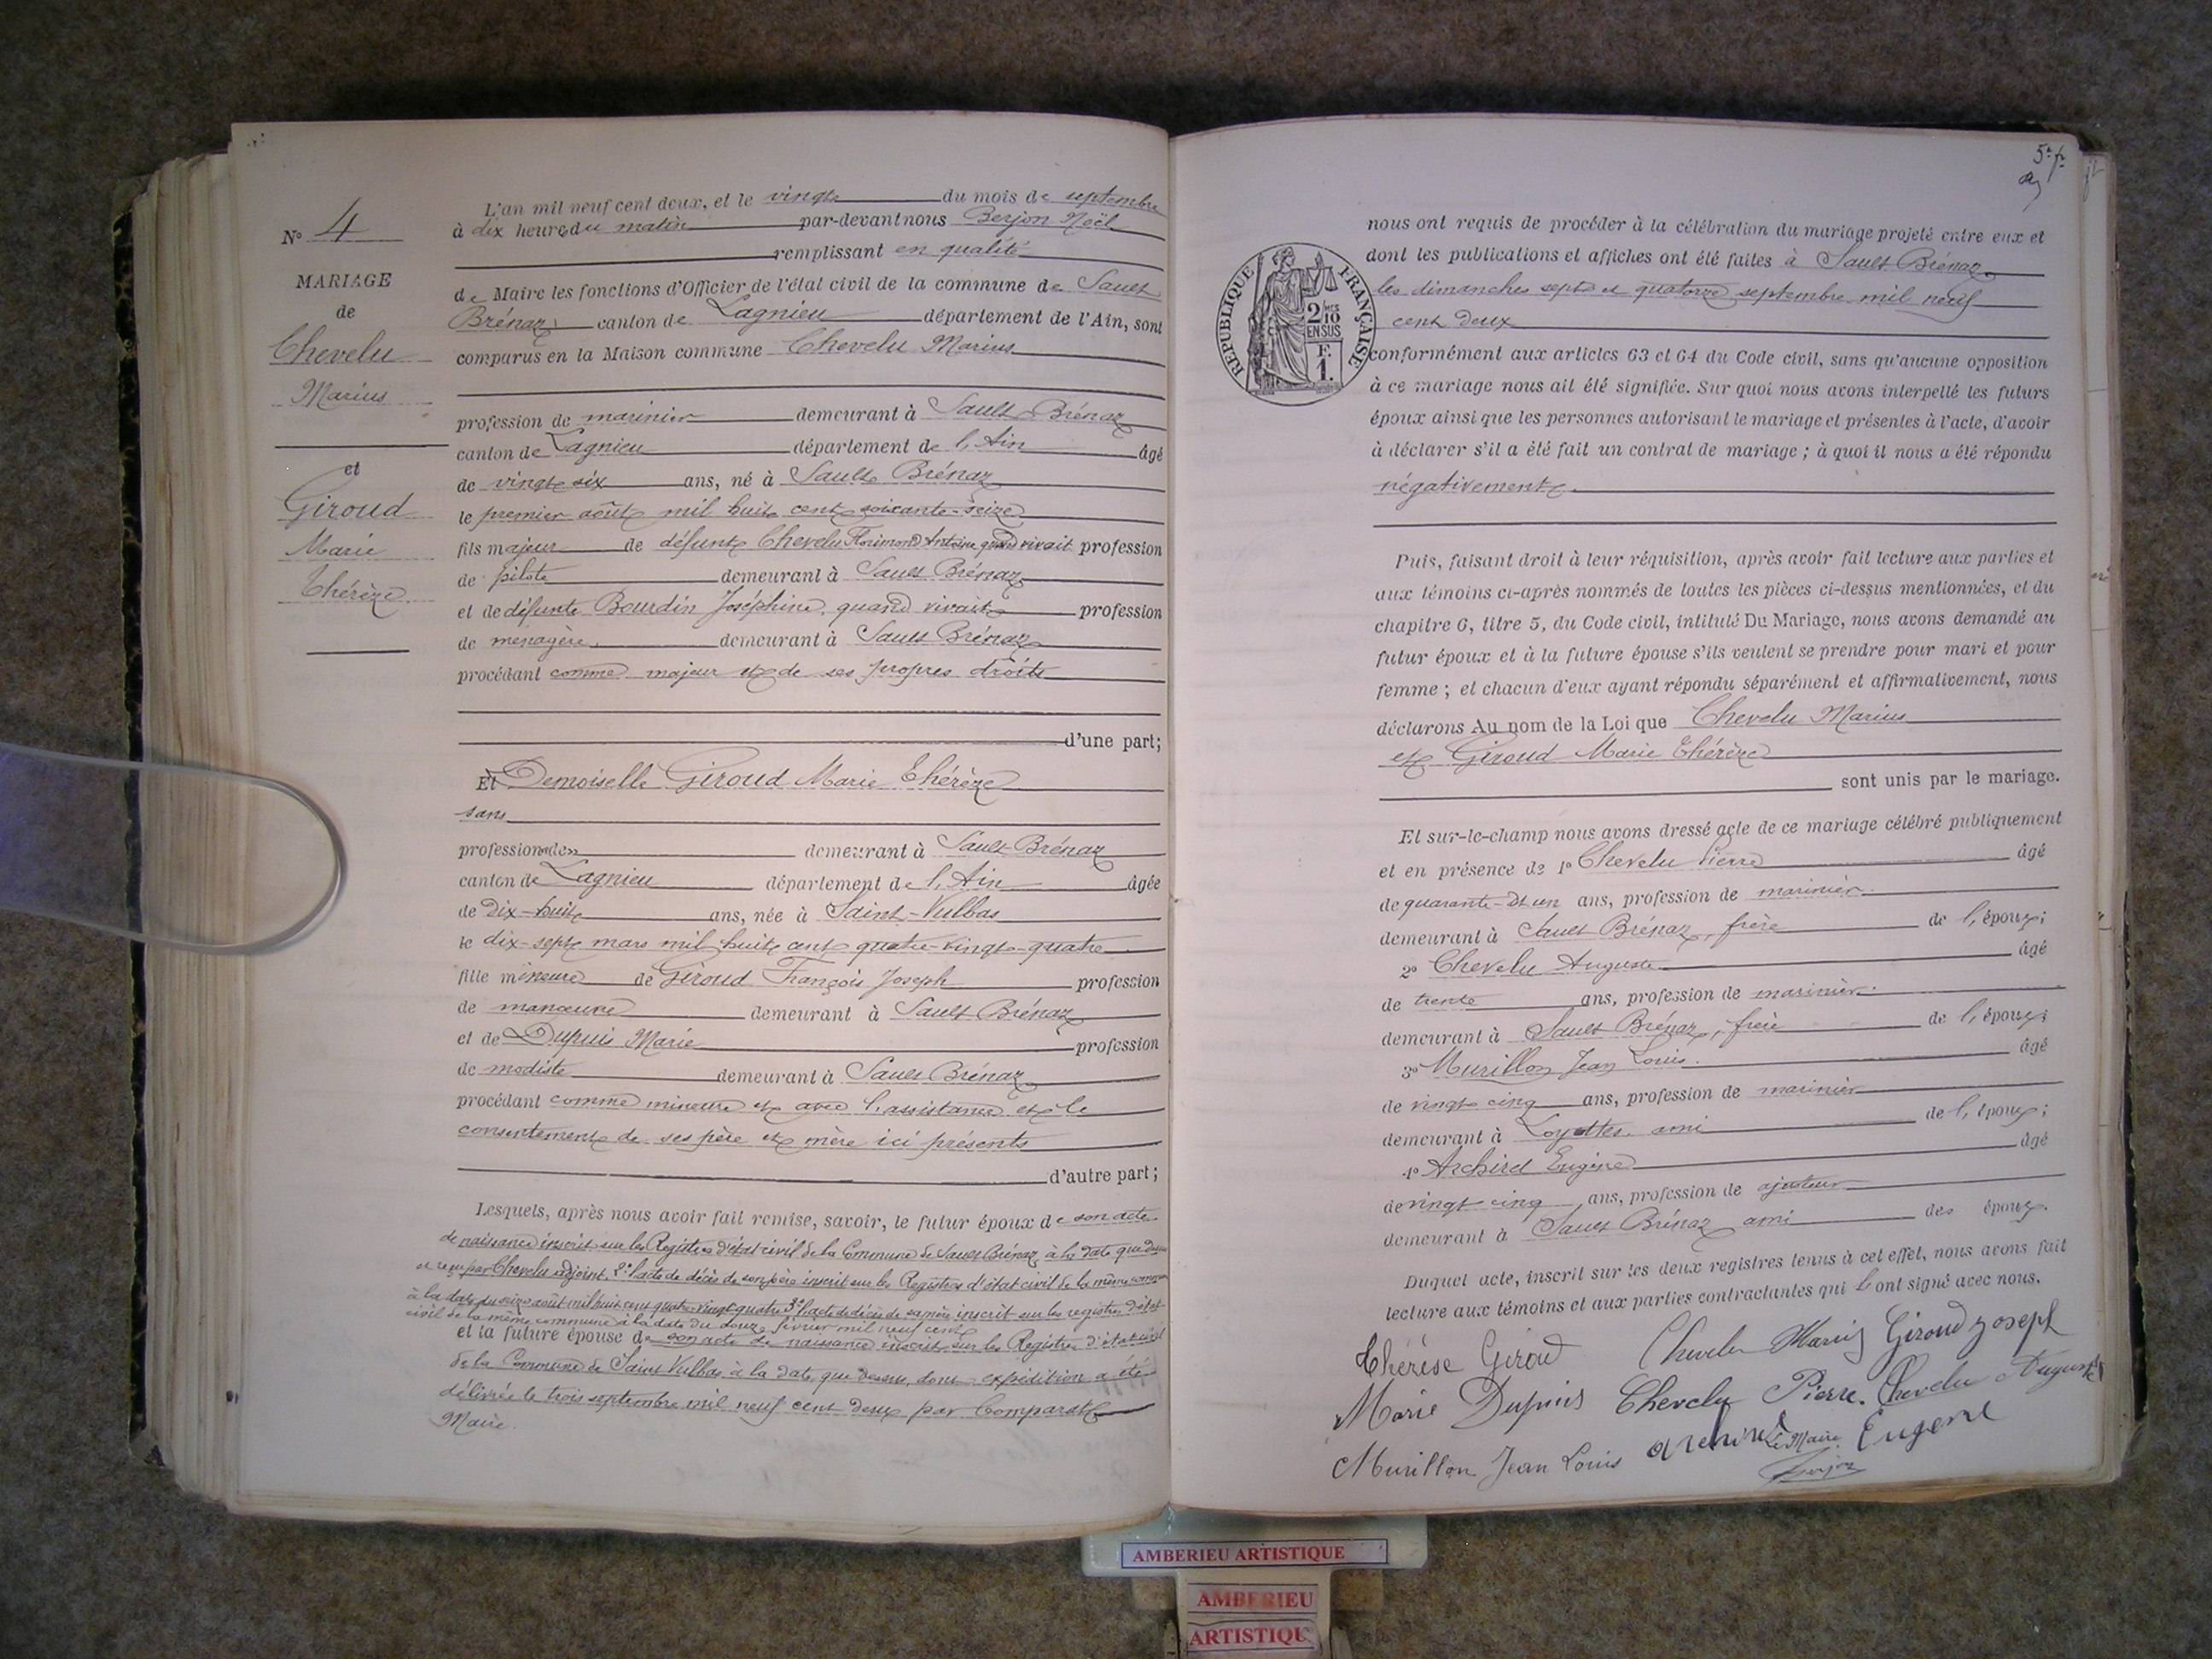 N° 4
MARIAGE
de
Chevelu
Marius
et
Giroud
Marie
Thérèze
L'an mil neuf cent deux, et le vingt du mois de septembre
à dix heures du matin par-devant nous Berjon Noël
remplissant en qualité
de Maire les fonctions d'Officier de l'état civil de la commune de Sault
Brénaz canton de Lagnieu département de l'Ain, sont
comparus en la Maison commune Chevelu Marius
profession de marinier demeurant à Sault-Brénaz
canton de Lagnieu département de l'Ain âgé
de vingt six ans, né à Sault Brénaz
le premier août mil huit cent soixante-seize
fils majeur de défunt Chevelu Florimond Antoine quand vivait profession
de pilote demeurant à Sault Brénaz
et de défunte Bourdin Joséphine, quand vivait profession
de ménagère, demeurant à Sault Brénaz
procédant comme majeur et de ses propres droits
d'une part;
Et Demoiselle Giroud Marie Thérèze
sans
profession demeurant à Sault Brénaz
canton de Lagnieu département de l'Ain âgée
de dix-huit ans, née à Saint-Vulbas
le dix-sept mars mil huit cent quatre-vingt-quatre
fille mineure de Giroud François Joseph profession
de manœuvre demeurant à Sault Brénaz
et de Dupuis Marie profession
de modiste demeurant à Sault Brénaz
procédant comme mineure et avec l'assistance et le
consentement de ses père et mère ici présents
d'autre part;
Lesquels, après nous avoir fait remise, savoir, le futur époux de son acte
de naissance inscrit sur les Registres d'état civil de la Commune de Sault Brénaz à la date que dessus
et reçu par Chevelu adjoint, 2° l'acte de décès de son père inscrit sur les Registres d'état civil de la même commune
à la date du seize août mil huit cent quatre-vingt-quatre 3° l'acte de décès de sa mère inscrit sur les registres d'état
civil de la même commune à la date du douze février mil neuf cent
et la future épouse de son acte de naissance inscrit sur les Registres d'état civil
de la Commune de Saint Vulbas à la date que dessus, dont expédition a été
délivrée le trois septembre mil neuf cent deux par Comparat
Maire.
5e f.
nous ont requis de procéder à la célébration du mariage projeté entre eux et
dont les publications et affiches ont été faites à Sault Brénaz
les dimanches sept et quatorze septembre mil neuf
cent deux
RÉPUBLIQUE FRANÇAISE
2/10 MES
EN SUS
F.
1.
conformément aux articles 63 et 64 du Code civil, sans qu'aucune opposition
à ce mariage nous ait été signifiée. Sur quoi nous avons interpellé les futurs
époux ainsi que les personnes autorisant le mariage et présentes à l'acte, d'avoir
à déclarer s'il a été fait un contrat de mariage; à quoi il nous a été répondu
négativement.
Puis, faisant droit à leur réquisition, après avoir fait lecture aux parties et
aux témoins ci-après nommés de toutes les pièces ci-dessus mentionnées, et du
chapitre 6, titre 5, du Code civil, intitulé Du Mariage, nous avons demandé au
futur époux et à la future épouse s'ils veulent se prendre pour mari et pour
femme; et chacun d'eux ayant répondu séparément et affirmativement, nous
déclarons Au nom de la Loi que Chevelu Marius
et Giroud Marie Thérèze
sont unis par le mariage.
Et sur-le-champ nous avons dressé acte de ce mariage célébré publiquement
et en présence de 1° Chevelu Pierre âgé
de quarante-et un ans, profession de marinier
demeurant à Sault Brénaz, frère de l'époux;
2° Chevelu Auguste âgé
de trente ans, profession de marinier
demeurant à Sault Brénaz, frère de l'époux;
3° Murillon Jean Louis. âgé
de vingt cinq ans, profession de marinier
demeurant à Loyettes ami de l'époux;
4° Archirel Eugène âgé
de vingt cinq ans, profession de ajusteur
demeurant à Sault Brénaz ami des époux.
Duquel acte, inscrit sur les deux registres tenus à cet effet, nous avons fait
lecture aux témoins et aux parties contractantes qui l'ont signé avec nous.
Thérèse Giroud Chevelu Marius Giroud Joseph
Marie Dupuis Chevelu Pierre. Chevelu Auguste
Murillon Jean Louis Archirel Eugene
Le Maire
Berjon
AMBERIEU ARTISTIQUE
AMBERIEU
ARTISTIQUE